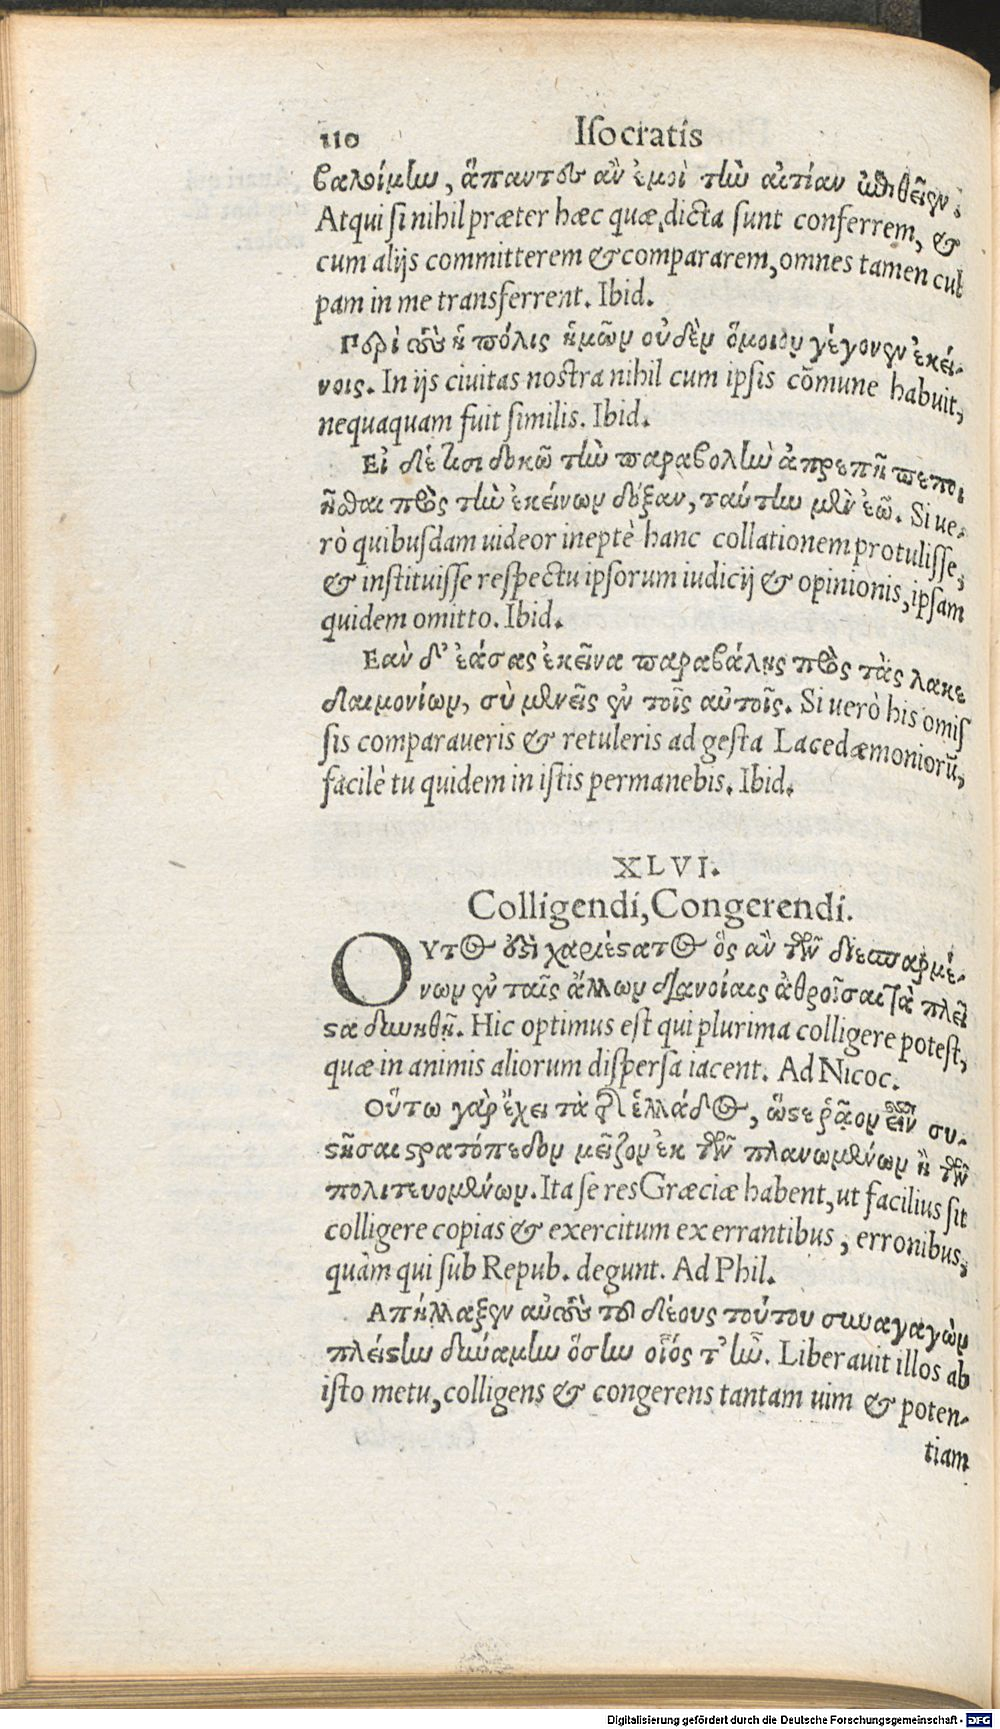 110 Iſocratis
βαλοίμην, ἅπαντες ἂν ἐμοὶ τὴν αἰτίαν ἐπιθεῖεν.
Atqui ſi nihil præter hæc quæ dicta ſunt conferrem, &
cum alijs committerem & compararem, omnes tamen cul
pam in me transferrent. Ibid.
Περὶ οὓς ἡ πόλις ἡμῶν οὐδὲν ὅμοιον γέγονεν ἐκεί-
νοις. In ijs ciuitas noſtra nihil cum ipſis cõmune habuit,
nequaquam fuit ſimilis. Ibid.
Εἰ δέ τισι δοκῶ τὴν παραβολὴν ἀπρεπῆ πεποι
ῆσθαι πρὸς τὴν ἐκείνων δόξαν, ταύτην μὲν ἐῶ. Si ue-
rò quibuſdam uideor ineptè hanc collationem protuliſſe,
& inſtituiſſe reſpectu ipſorum iudicij & opinionis, ipſam
quidem omitto. Ibid.
Εὰν δ' ἐάσας ἐκεῖνα παραβάλῃς πρὸς τὰς λακε
δαιμονίων, σὺ μενεῖς ἐν τοῖς αὐτοῖς. Si uerò his omiſ
ſis comparaueris & retuleris ad geſta Lacedæmoniorũ,
facilè tu quidem in iſtis permanebis. Ibid.
XLVI.
Colligendi, Congerendi.
ΟΥτος χαριέστατος ὃς ἂν τῶν διεσπαρμέ-
νων ἐν ταῖς ἄλλων διανοίαις ἀθροῖσαι τὰ πλεῖ
στα δυνηθῇ. Hic optimus eſt qui plurima colligere poteſt,
quæ in animis aliorum diſperſa iacent. Ad Nicoc.
Οὕτω γὰρ ἔχει τὰ τῆς ἑλλάδος, ὥστε ῥᾷον εἶναι συ-
στῆσαι στρατόπεδον μεῖζον ἐκ τῶν πλανωμένων ἢ τῶν
πολιτευομένων. Ita ſe res Græciæ habent, ut facilius ſit
colligere copias & exercitum ex errantibus, erronibus,
quàm qui ſub Repub. degunt. Ad Phil.
Απήλλαξεν αὐτοὺς τοῦ δέους τούτου συναγαγὼν
πλείστην δύναμιν ὅσην οἷός τ' ἦν. Liberauit illos ab
iſto metu, colligens & congerens tantam uim & poten-
tiam
Digitalisierung gefördert durch die Deutsche Forschungsgemeinschaft - DFG